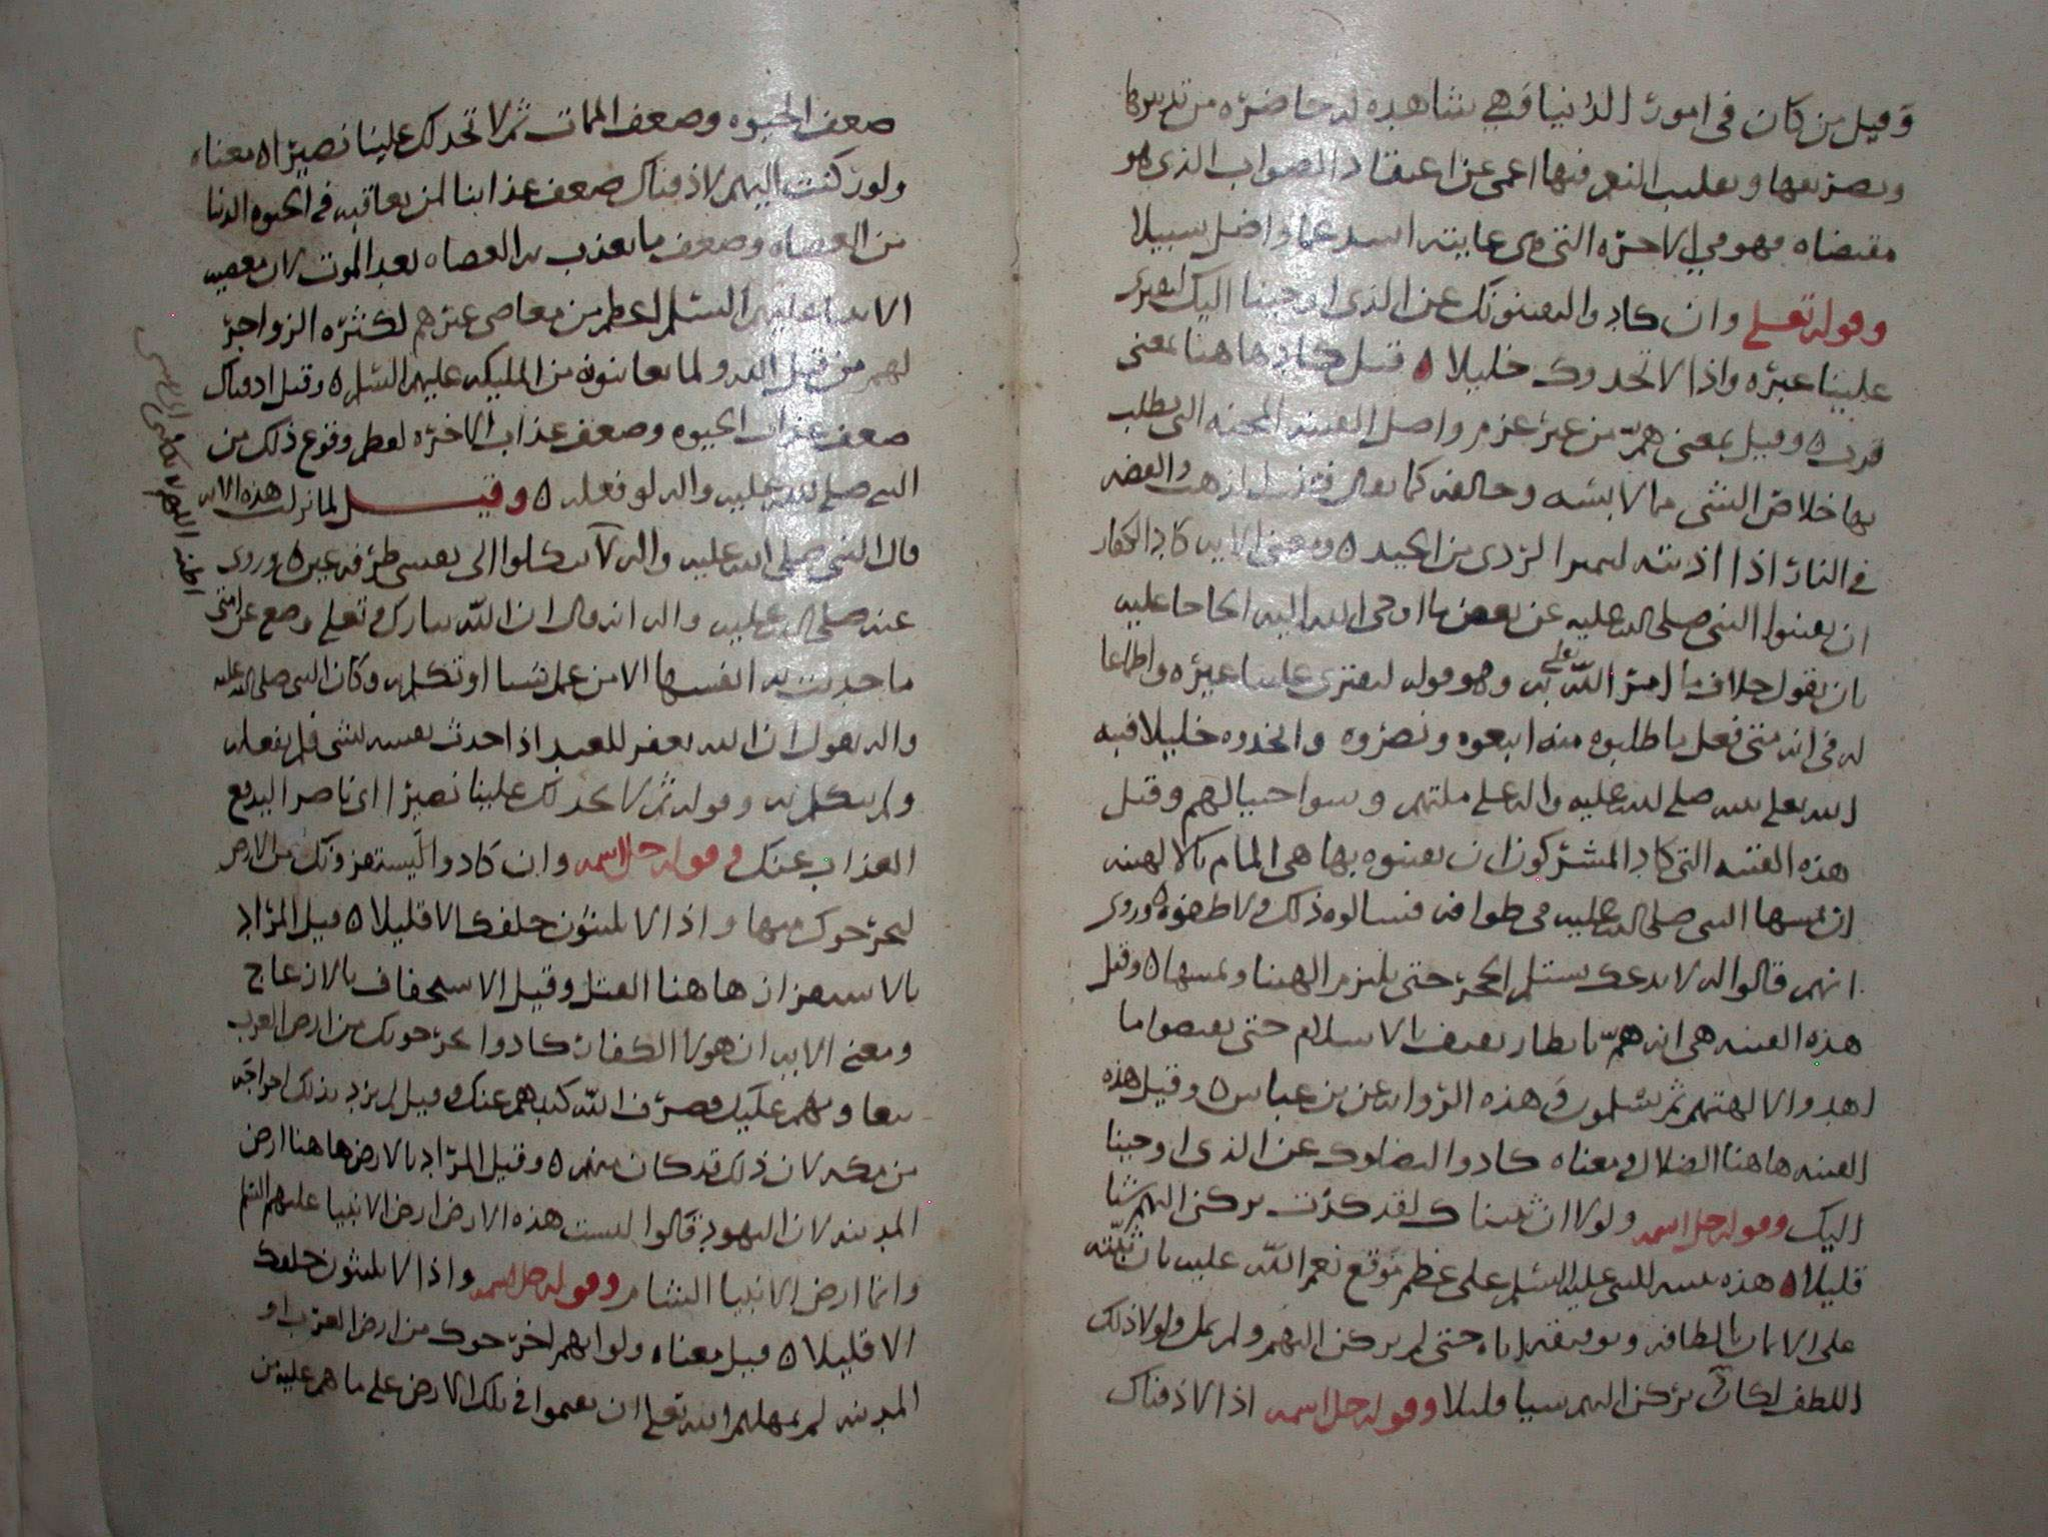 وقيل من كان في امور الدنيا وهي شاهده له حاضره من تدبيرها
وتصريفها وتقليب النعم فيها اعمى عن اعتقاد الصواب الذي هو
مقتضاه فهو في الاخره التي هي غايته اشد عما واضل سبيلا
وقوله تعلى وان كادوا ليفتنونك عن الذي اوحينا اليك لتفترى
علينا غيره واذا لاتخذوك خليلا ۵ قيل كاد هاهنا بمعنى
قرب ۵ وقيل بمعنى هم من غير عزم واصل الفتنه المحنه التي يطلب
بها خلاص الشي مما لابسه وخالفه كما يقال فتنت الذهب والفضه
في النار اذا اذبته ليميز الردي من الجيد ۵ ومعنى الايه كاد الكفار
ان يفتنوا النبي صلى الله عليه عن بعض ما اوحى الله اليه الحاحا عليه
بان يقول خلاف ما امر الله تعلى به وهو قوله لتفترى علينا غيره واطماعا
له في انه متى فعل ما طلبوه منه اتبعوه ونصروه واتخذوه خليلا فنبه
الله تعلى نبيه صلى الله عليه واله على ملتهم وسوا حيالهم وقيل
هذه الفتنه التي كاد المشركون ان يفتنوه بها هي المام بالالهه
ان يمسها النبي صلى الله عليه في طوافه فسالوه ذلك ولاطفوه ۵ وروى
انهم قالوا له لا ندعك تستلم الحجر حتى يلتزم الهتنا وتمسها ۵ وقيل
هذه الفتنه هي انه هم بانظار ثقيف بالاسلام حتى يقبضوا ما
اهدوا لالهتهم ثم يسلمون في هذه الروايه عن بن عباس ۵ وقيل هذه
الفتنه هاهنا الضلال ومعناه كادوا ليضلوك عن الذي اوحينا
اليك وقوله جل اسمه ولولا ان ثبتناك لقد كدت تركن اليهم شيا
قليلا ۵ هذه تنبيه للنبي عليه السلم على عظم موقع نعم الله عليه بان ثبته
على الايمان بالطافه وتوفيقه اياه حتى لم يركن اليهم ولم يمل ولولا ذلك
اللطف لكان يركن اليهم شيا قليلا وقوله جل اسمه اذا لاذقناك
ضعف الحيوه وضعف الممات ثم لا تجد لك علينا نصيرا ۵ معناه
ولو ركنت اليهم لاذقناك ضعف عذابنا لمن يعاقبه في الحيوه الدنيا
من العصاه وضعف ما يعذب به العصاه بعد الموت لان معصيه
الانبيا عليهم السلم اعظم من معاصي غيرهم لكثره الزواجر
لهم من قبل الله ولما يعاينونه من المليكه عليهم السلم ۵ وقيل اذقناك
ضعف عذاب الحيوه وضعف عذاب الاخره لعظم وقوع ذلك من
النبي صلى الله عليه واله لو فعله ۵ وقيل لما نزلت هذه الايه
قال النبي صلى الله عليه واله لا تكلوا الى نفسي طرفه عين ۵ وروى
عنه صلى الله عليه واله انه قال ان الله تبارك وتعلى وضع عن امتي
ما حدثت به انفسها الا من عمل شيا او تكلم به وكان النبي صلى الله عليه
واله يقول ان الله يغفر للعبد اذا حدث نفسه لشي فلم يفعله
ولم يتكلم به وقوله ثم لا تجد لك علينا نصيرا اى ناصرا ليدفع
العذاب عنك وقوله جل اسمه وان كادوا ليستفزونك من الارض
ليخرجوك منها واذا لا يلبثون خلفك الا قليلا ۵ قيل المراد
بالاستفزاز هاهنا القتل وقيل الاستخفاف بالازعاج
ومعنى الايه ان هولا الكفار كادوا يخرجونك من ارض العرب
بتعاونهم عليك فصرف الله كيدهم عنك وقيل لم يرد بذلك اخراجه
من مكه لان ذلك قد كان منهم ۵ وقيل المراد بالارض هاهنا ارض
المدينه لان اليهود قالوا ليست هذه الارض ارض الانبيا عليهم السلم
وانما ارض الانبيا الشام وقوله جل اسمه واذا لا يلبثون خلفك
الا قليلا ۵ قيل معناه ولو انهم اخرجوك من ارض العرب او
المدينه لم يمهلهم الله تعلى ان يقيموا في تلك الارض على ما هم عليه من